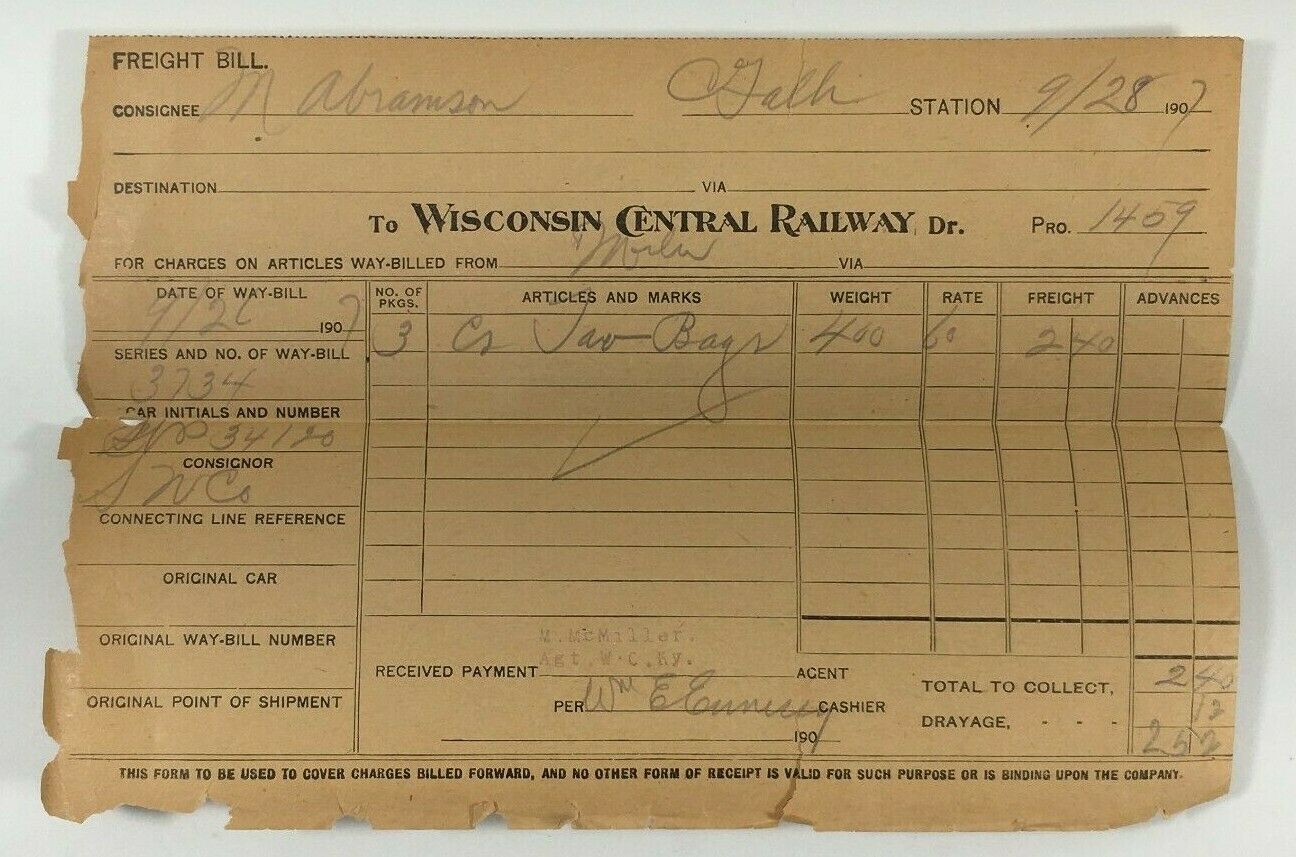 FREIGHT BILL.
CONSIGNEE M Abramson STATION 9/28 1907
DESTINATION VIA
To WISCONSIN CENTRAL RAILWAY, Dr. PRO. 1459
FOR CHARGES ON ARTICLES WAY-BILLED FROM VIA
DATE OF WAY-BILL NO. OF PKGS. ARTICLES AND MARKS WEIGHT RATE FREIGHT ADVANCES
1907 3 Cs Bags 400 60 2 40
SERIES AND NO. OF WAY-BILL
3734
CAR INITIALS AND NUMBER
34120
CONSIGNOR
S W Co
CONNECTING LINE REFERENCE
ORIGINAL CAR
ORIGINAL WAY-BILL NUMBER
M. McMiller.
Agt. W. C. Ry.
RECEIVED PAYMENT AGENT
TOTAL TO COLLECT, 2 40
ORIGINAL POINT OF SHIPMENT
PER Wm E Ennessy CASHIER
DRAYAGE, - - - 12
190 2 52
THIS FORM TO BE USED TO COVER CHARGES BILLED FORWARD, AND NO OTHER FORM OF RECEIPT IS VALID FOR SUCH PURPOSE OR IS BINDING UPON THE COMPANY.